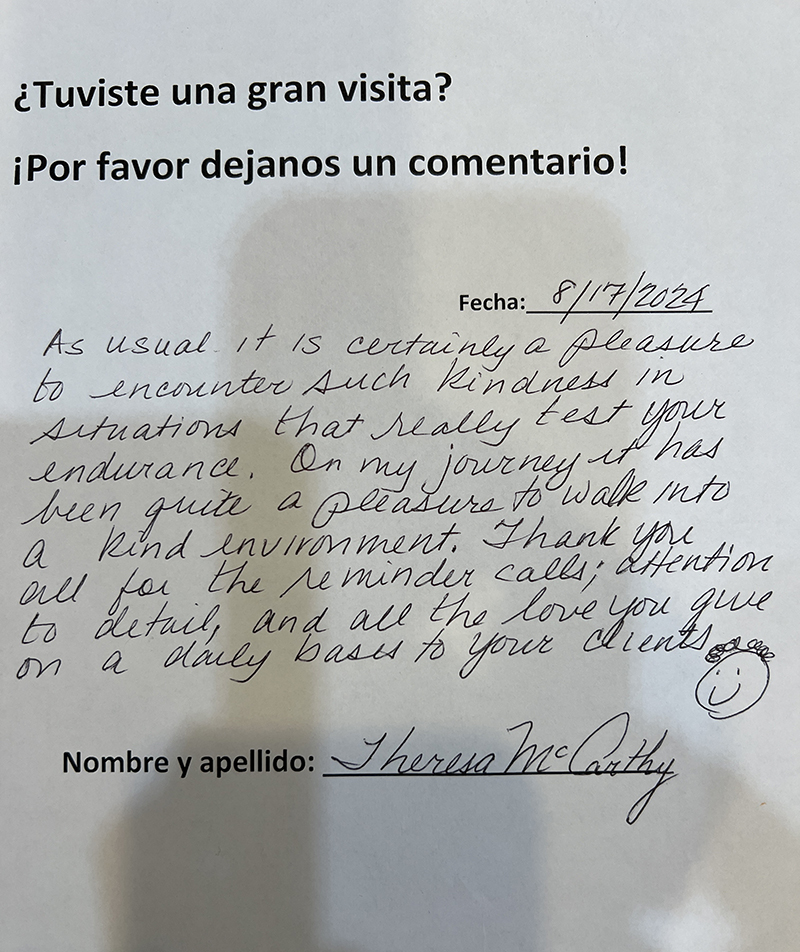 ¿Tuviste una gran visita?
¡Por favor dejanos un comentario!
Fecha: 8/17/2024
As usual it is certainly a pleasure
to encounter such kindness in
situations that really test your
endurance. On my journey it has
been quite a pleasure to walk into
a kind environment. Thank you
all for the reminder calls; attention
to detail, and all the love you give
on a daily basis to your clients
Nombre y apellido: Theresa McCarthy